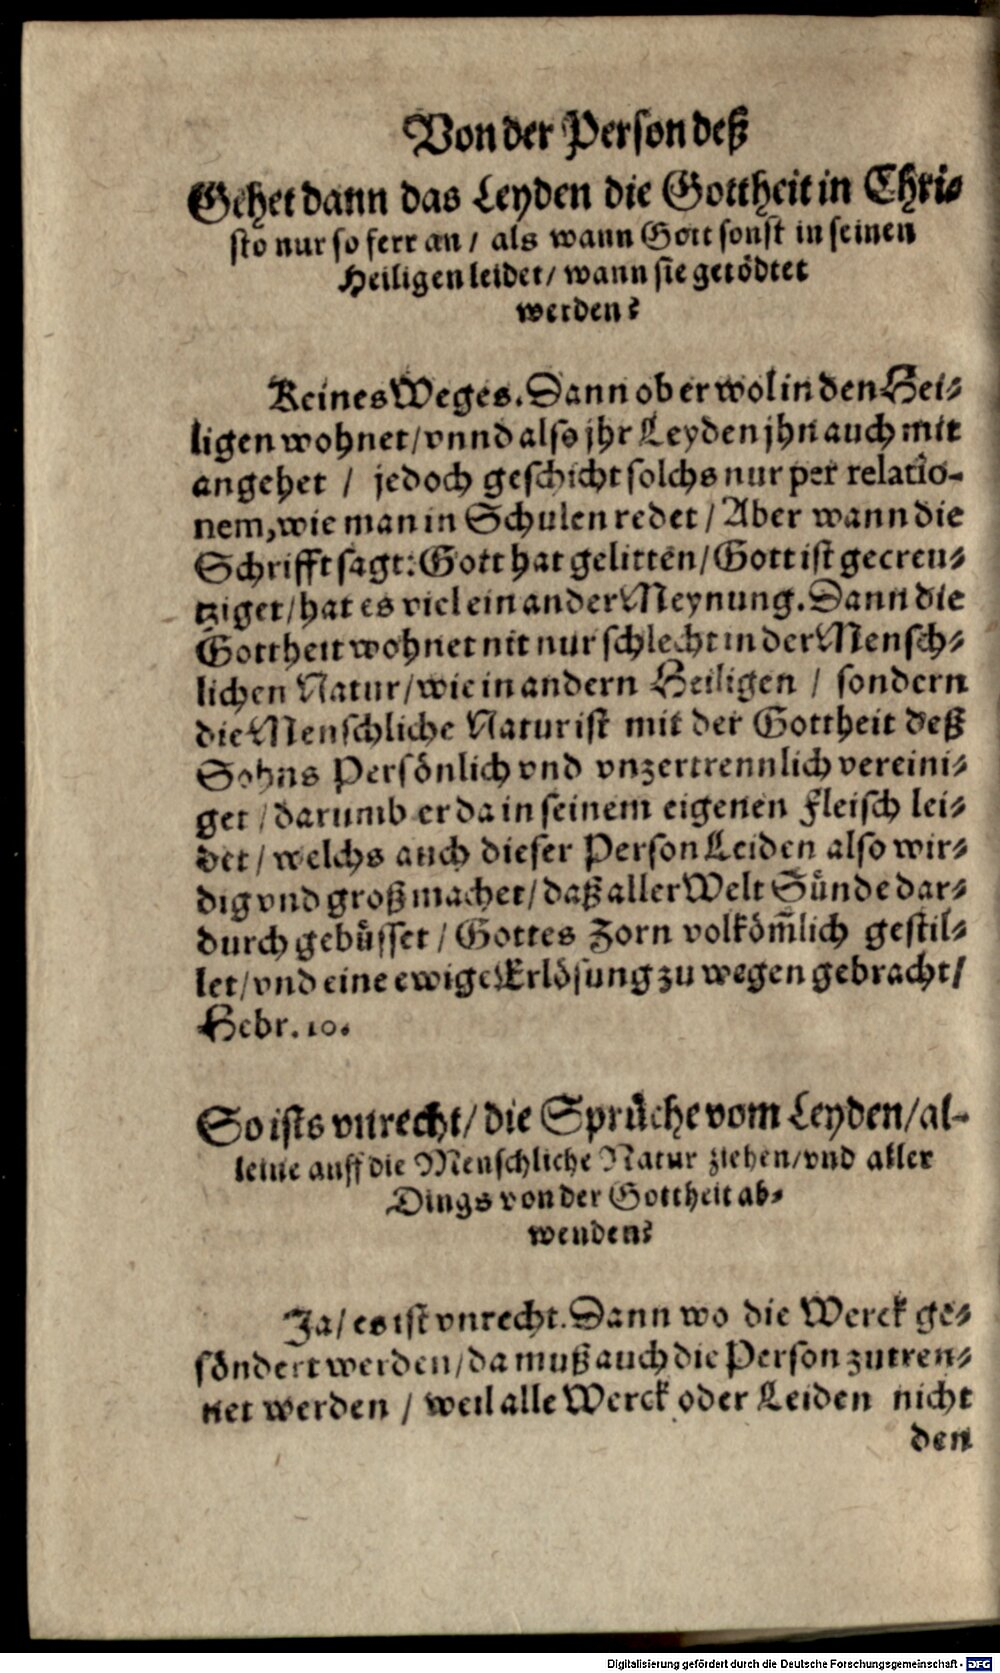 Von der Person deß
Gehet dann das Leyden die Gottheit in Chri-
sto nur so ferr an / als wann Gott sonst in seinen
Heiligen leidet / wann sie getödtet
werden?
Keines Weges. Dann ob er wol in den Hei-
ligen wohnet / vnnd also jhr Leyden jhn auch mit
angehet / jedoch geschicht solchs nur per relatio-
nem, wie man in Schulen redet / Aber wann die
Schrifft sagt: Gott hat gelitten / Gott ist gecreu-
tziget / hat es viel ein ander Meynung. Dann die
Gottheit wohnet nit nur schlecht in der Mensch-
lichen Natur / wie in andern Heiligen / sondern
die Menschliche Natur ist mit der Gottheit deß
Sohns Persönlich vnd vnzertrennlich vereini-
get / darumb er da in seinem eigenen Fleisch lei-
det / welchs auch dieser Person Leiden also wir-
dig vnd groß machet / daß aller Welt Sünde dar-
durch gebüsset / Gottes Zorn volköm̃lich gestil-
let / vnd eine ewige Erlösung zu wegen gebracht /
Hebr. 10.
So ists vnrecht / die Sprüche vom Leyden / al-
leine auff die Menschliche Natur ziehen / vnd aller
Dings von der Gottheit ab-
wenden?
Ja / es ist vnrecht. Dann wo die Werck ge-
söndert werden / da muß auch die Person zutren-
net werden / weil alle Werck oder Leiden nicht
den
Digitalisierung gefördert durch die Deutsche Forschungsgemeinschaft - DFG